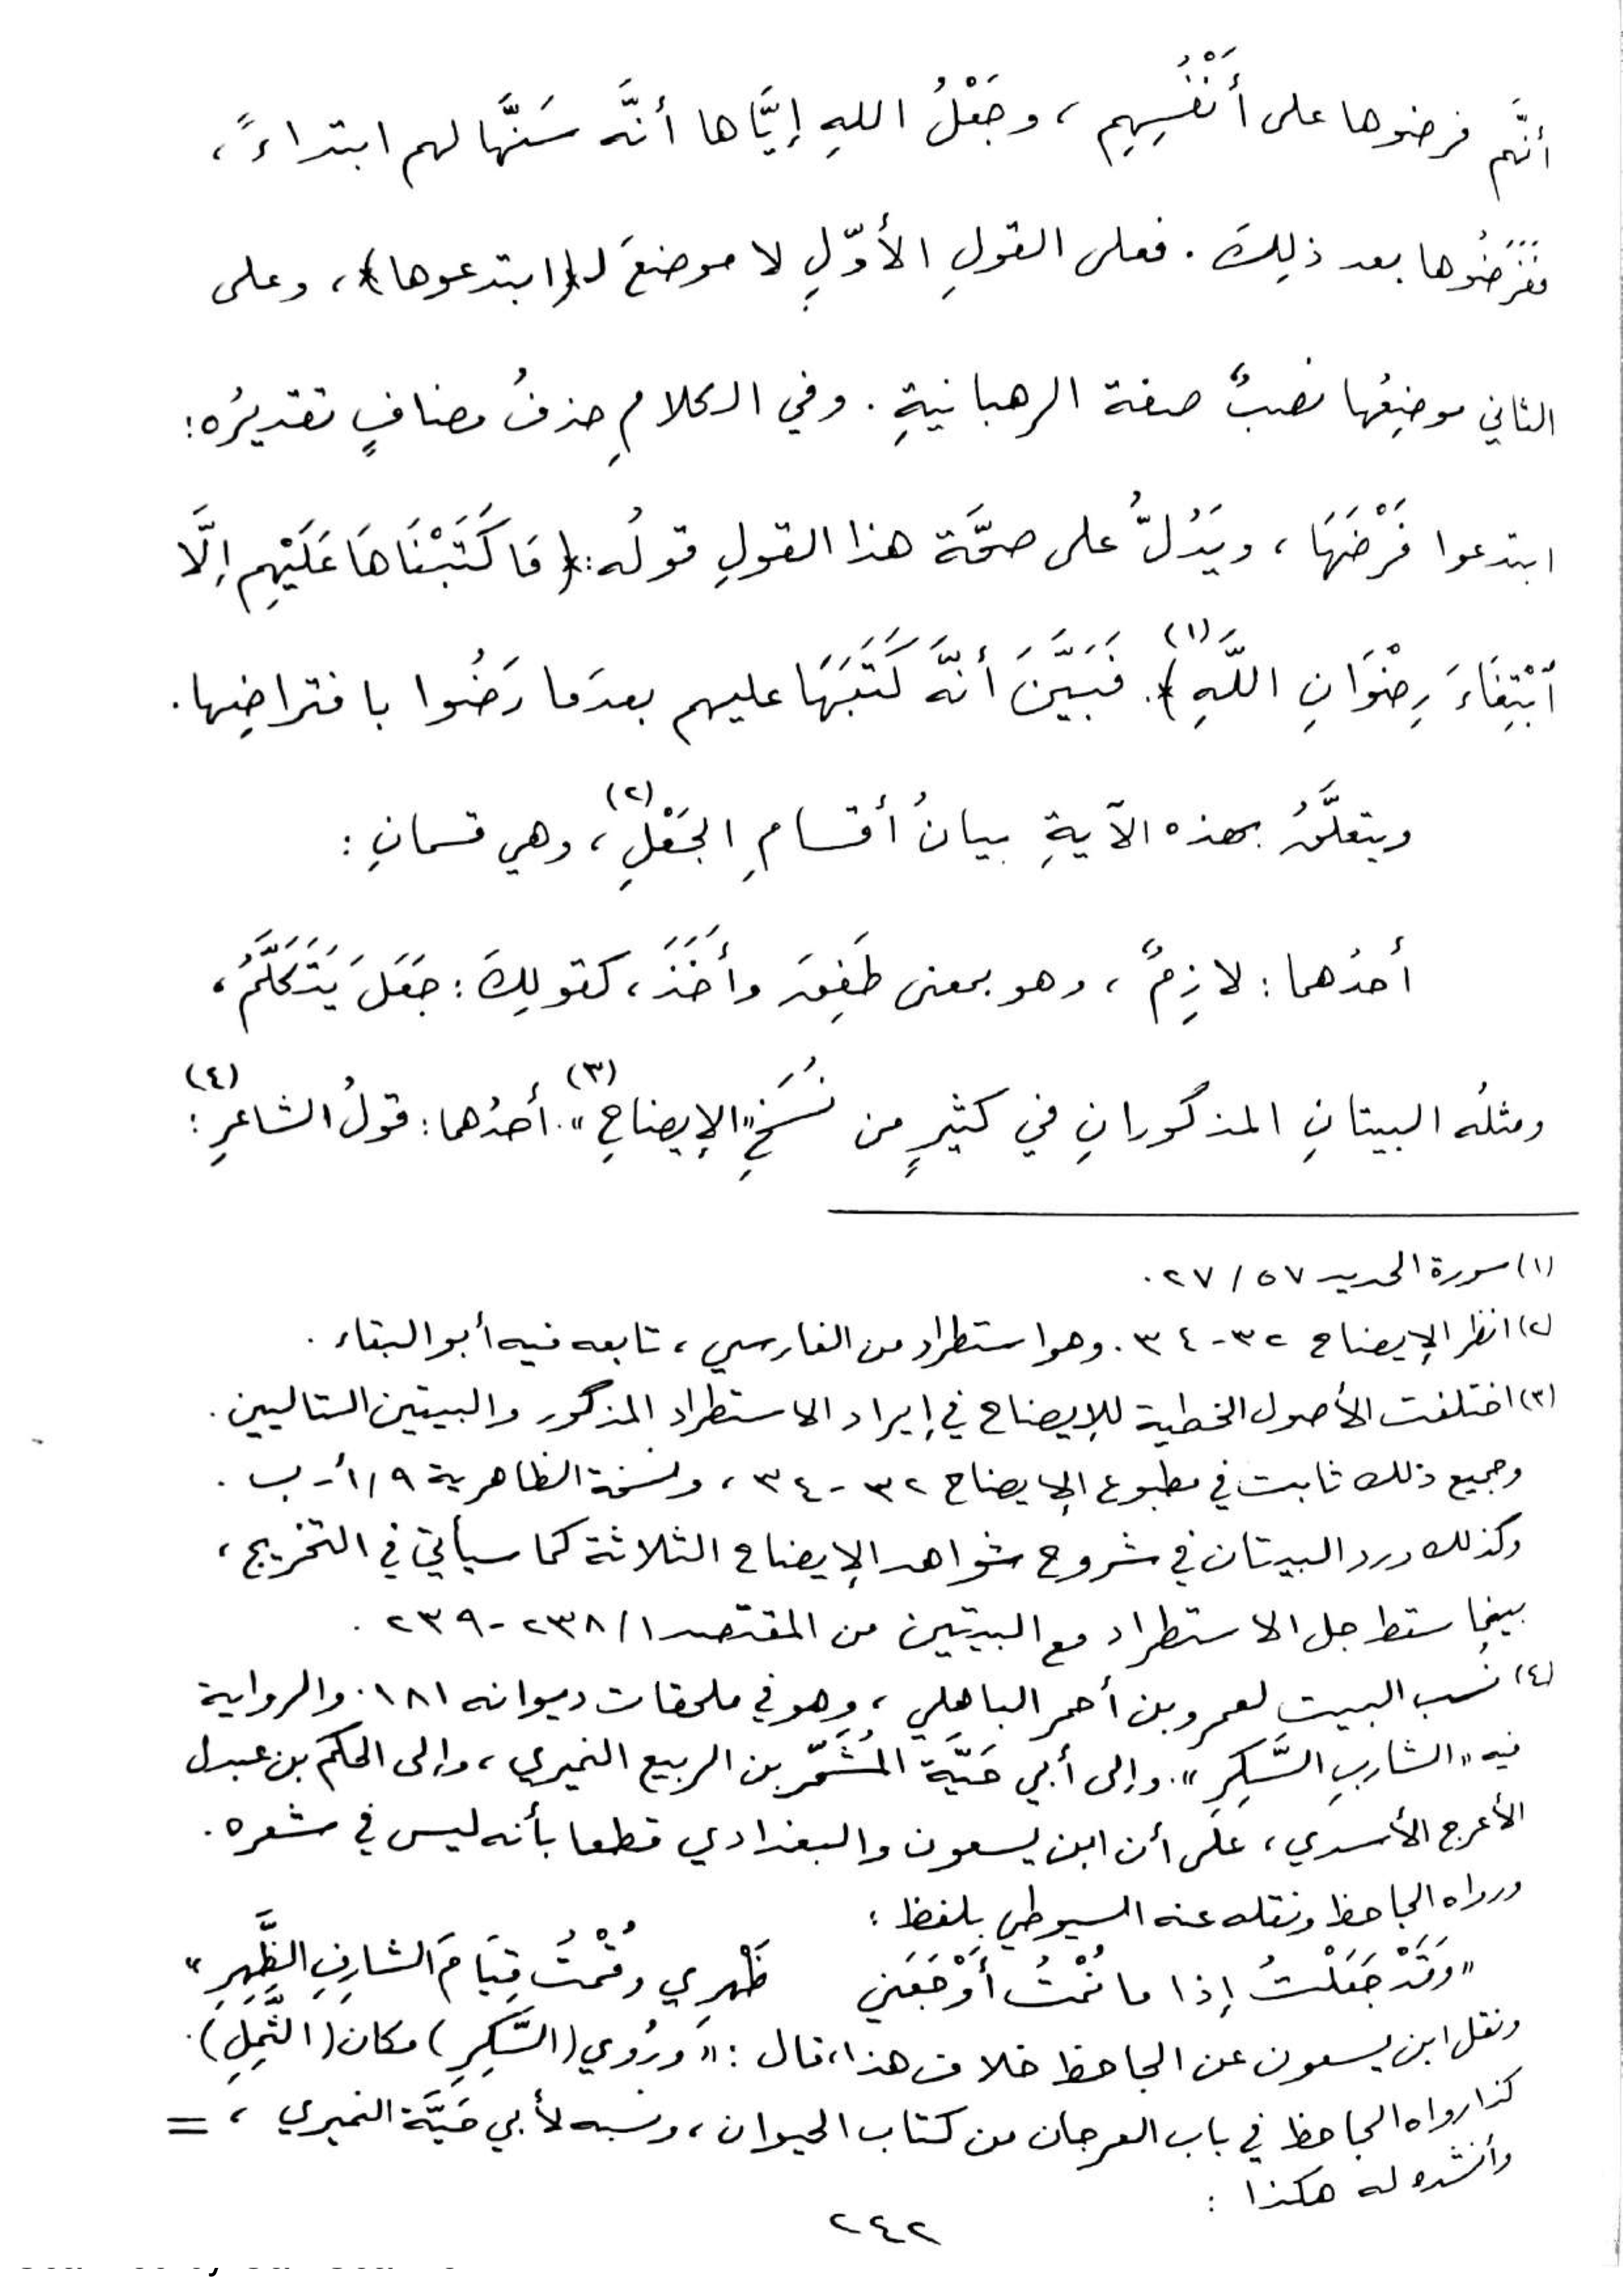 أنَّهم فرضوها على أَنْفُسِهِم ، وجَعْلُ اللهِ إيَّاها أنَّه سَنَّها لهم ابتداءً ،
فَفَرَضُوها بعد ذلِكَ . فعلى القولِ الأوّلِ لا موضعَ لـ﴿ابتدعوها﴾ ، وعلى
الثاني موضِعُها نصبٌ صفة الرهبانيةِ . وفي الكلامِ حذفُ مضافٍ تقديرُه :
ابتدعوا فَرْضَهَا ، ويَدُلُّ على صحَّة هذا القولِ قولُه : ﴿مَا كَتَبْنَاهَا عَلَيْهِم إِلَّا
ٱبْتِغَاءَ رِضْوَانِ اللَّهِ﴾(١) . فَبَيَّنَ أنَّه كَتَبَهَا عليهم بعدَما رَضُوا بافتراضِها .
ويتعلَّقُ بهذه الآيةِ بيانُ أقسامِ الجَعْلِ(٢) ، وهي قسمانِ :
أحدُهما : لازِمٌ ، وهو بمعنى طَفِقَ وأَخَذَ ، كقولِكَ : جَعَلَ يَتَكَلَّمُ ،
ومثلُه البيتانِ المذكورانِ في كثيرٍ من نُسَخِ "الإيضاحِ"(٣) . أحدُهما : قولُ الشاعرِ(٤) :
(١) سورة الحديد ٥٧ / ٢٧ .
(٢) انظر الإيضاح ٣٢ - ٣٤ . وهو استطراد من الفارسي ، تابعه فيه أبو البقاء .
(٣) اختلفت الأصول الخطية للإيضاح في إيراد الاستطراد المذكور والبيتين التاليين .
وجميع ذلك ثابت في مطبوع الإيضاح ٣٢ - ٣٤ ، ونسخة الظاهرية ٩ / أ - ب .
وكذلك ورد البيتان في شروح شواهد الإيضاح الثلاثة كما سيأتي في التخريج ،
بينما سقط جل الاستطراد مع البيتين من المقتصد ١ / ٢٣٨ - ٢٣٩ .
(٤) نُسب البيت لعمرو بن أحمر الباهلي ، وهو في ملحقات ديوانه ١٨١ . والرواية
فيه "الشاربِ السَّكِرِ" . وإلى أبي حَيَّة المُشَمَّر بن الربيع النميري ، وإلى الحكم بن عبدل
الأعرج الأسدي ، على أن ابن يسعون والبغدادي قطعا بأنه ليس في شعره .
ورواه الجاحظ ونقله عنه السيوطي بلفظ :
"وَقَدْ جَعَلْتُ إذا ما نُمْتُ أَوْجَعَني ظَهْرِي وقُمْتُ قِيَامَ الشارِفِ الظَّهِرِ"
ونقل ابن يسعون عن الجاحظ خلاف هذا ، قال : "ورُوي (السَّكِرِ) مكان (الثَّمِلِ) .
كذا رواه الجاحظ في باب العرجان من كتاب الحيوان ، ونسبه لأبي حَيَّة النميري ، =
وأنشده له هكذا :
٢٤٢